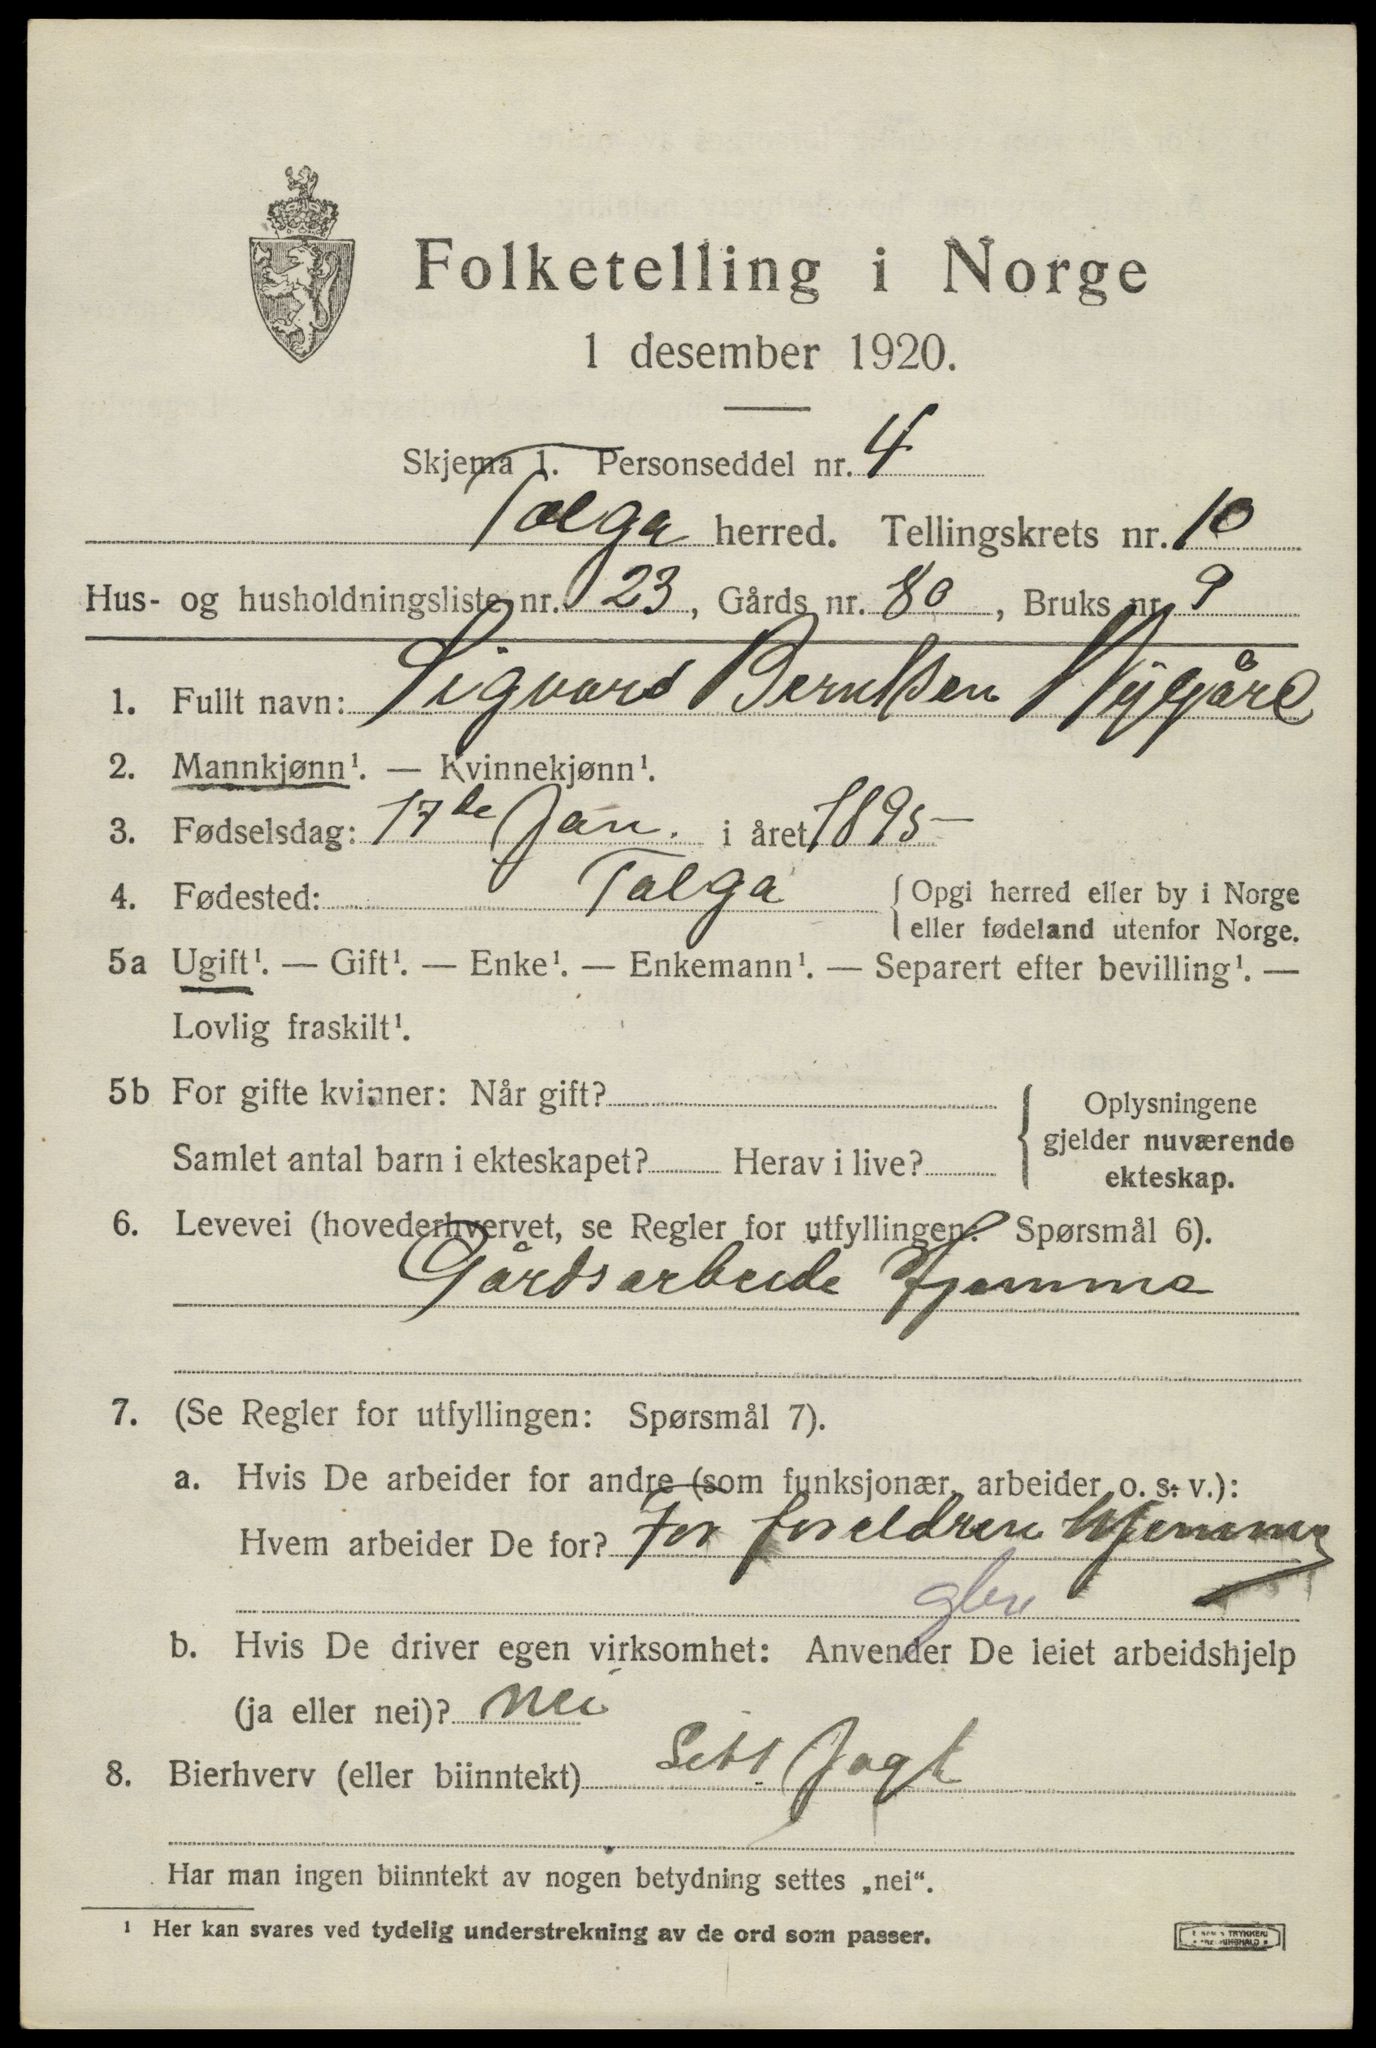 Folketelling i Norge
1 desember 1920.
Skjema 1. Personseddel nr. 4
Tolga herred. Tellingskrets nr. 10
Hus- og husholdningsliste nr. 23, Gårds nr. 80, Bruks nr. 9
1. Fullt navn: Sigvard Berntsen Nygård
2. Mannkjønn¹. — Kvinnekjønn¹.
3. Fødselsdag: 17de Jan. i året 1895 —
4. Fødested: Tolga {Opgi herred eller by i Norge
eller fødeland utenfor Norge.
5a Ugift¹. — Gift¹. — Enke¹. — Enkemann¹. — Separert efter bevilling¹. —
Lovlig fraskilt¹.
5b For gifte kvinner: Når gift?
Samlet antal barn i ekteskapet? Herav i live?
{Oplysningene
gjelder nuværende
ekteskap.
6. Levevei (hovederhvervet, se Regler for utfyllingen: Spørsmål 6).
Gårdsarbeide Hjemme
7. (Se Regler for utfyllingen: Spørsmål 7).
a. Hvis De arbeider for andre (som funksjonær, arbeider o. s. v.):
Hvem arbeider De for? For foreldrene hjemme
b. Hvis De driver egen virksomhet: Anvender De leiet arbeidshjelp
(ja eller nei)? nei
8. Bierhverv (eller biinntekt) Jagt
Har man ingen biinntekt av nogen betydning settes „nei".
¹ Her kan svares ved tydelig understrekning av de ord som passer.